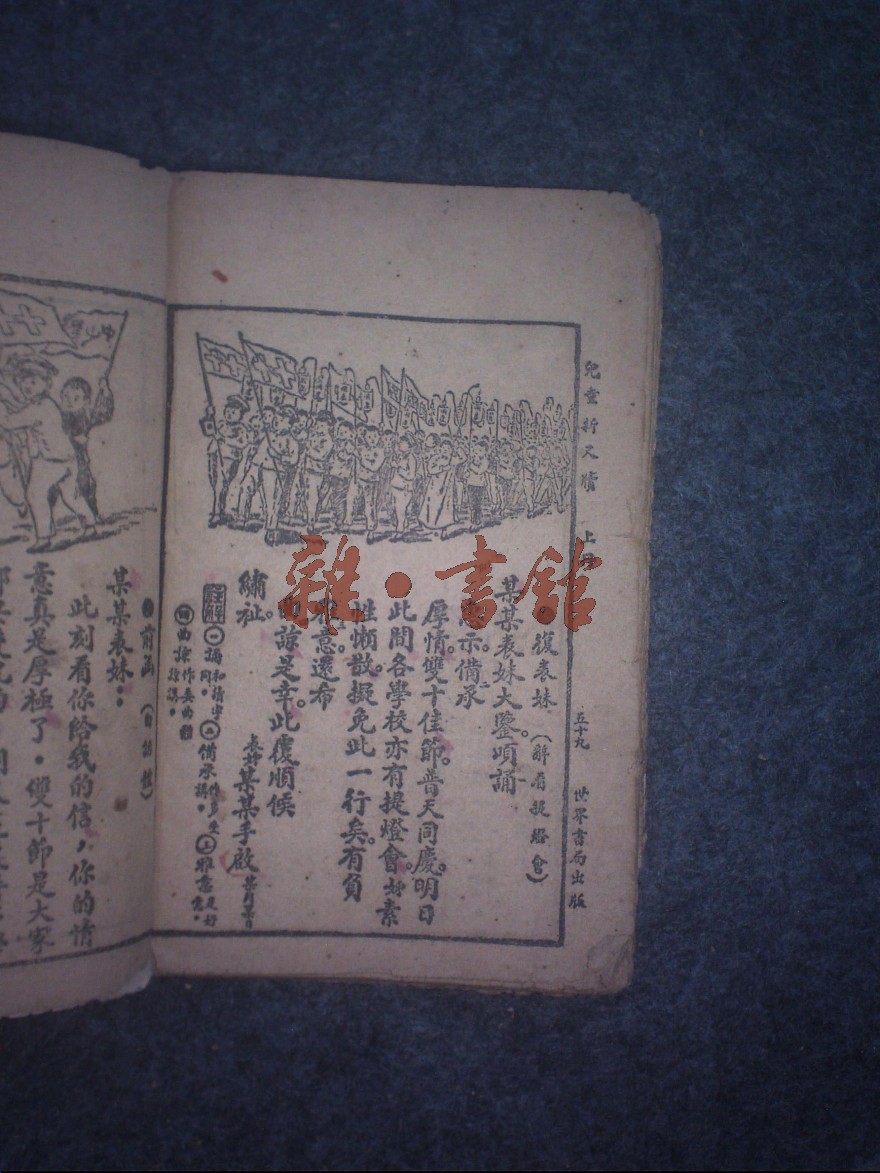 兒童新尺牘 上冊 五十九 世界書局出版
復表妹(辭看提燈會)
某某表妹大鑒頃誦
示。備承
厚情雙十佳節。普天同慶。明日
此間各學校亦有提燈會。妹素
性懶散。擬免此一行矣。有負
雅意還希
諒是幸。此覆順候
繡祉。
表姊某某手啟 某月某日
註解 ㊀誦和讀字同。㊁備承作多受講。㊂雅意是好意。
㊃曲諒作委曲
前函(白話體)
某某表妹:
此刻看你給我的信,你的情
意真是厚極了。雙十節是大家
中山
雜·書館